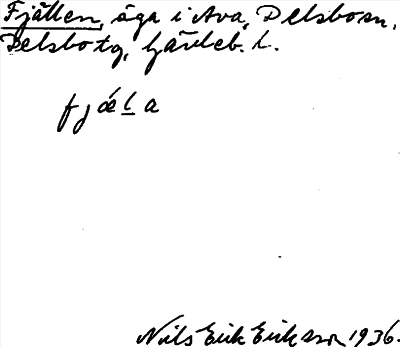 Fjällen, äga i Ava, Delsbosn,
Delsbo tg, Gävleb. L.
fjǽl̲a
Nils Erik Eriksson 1936.